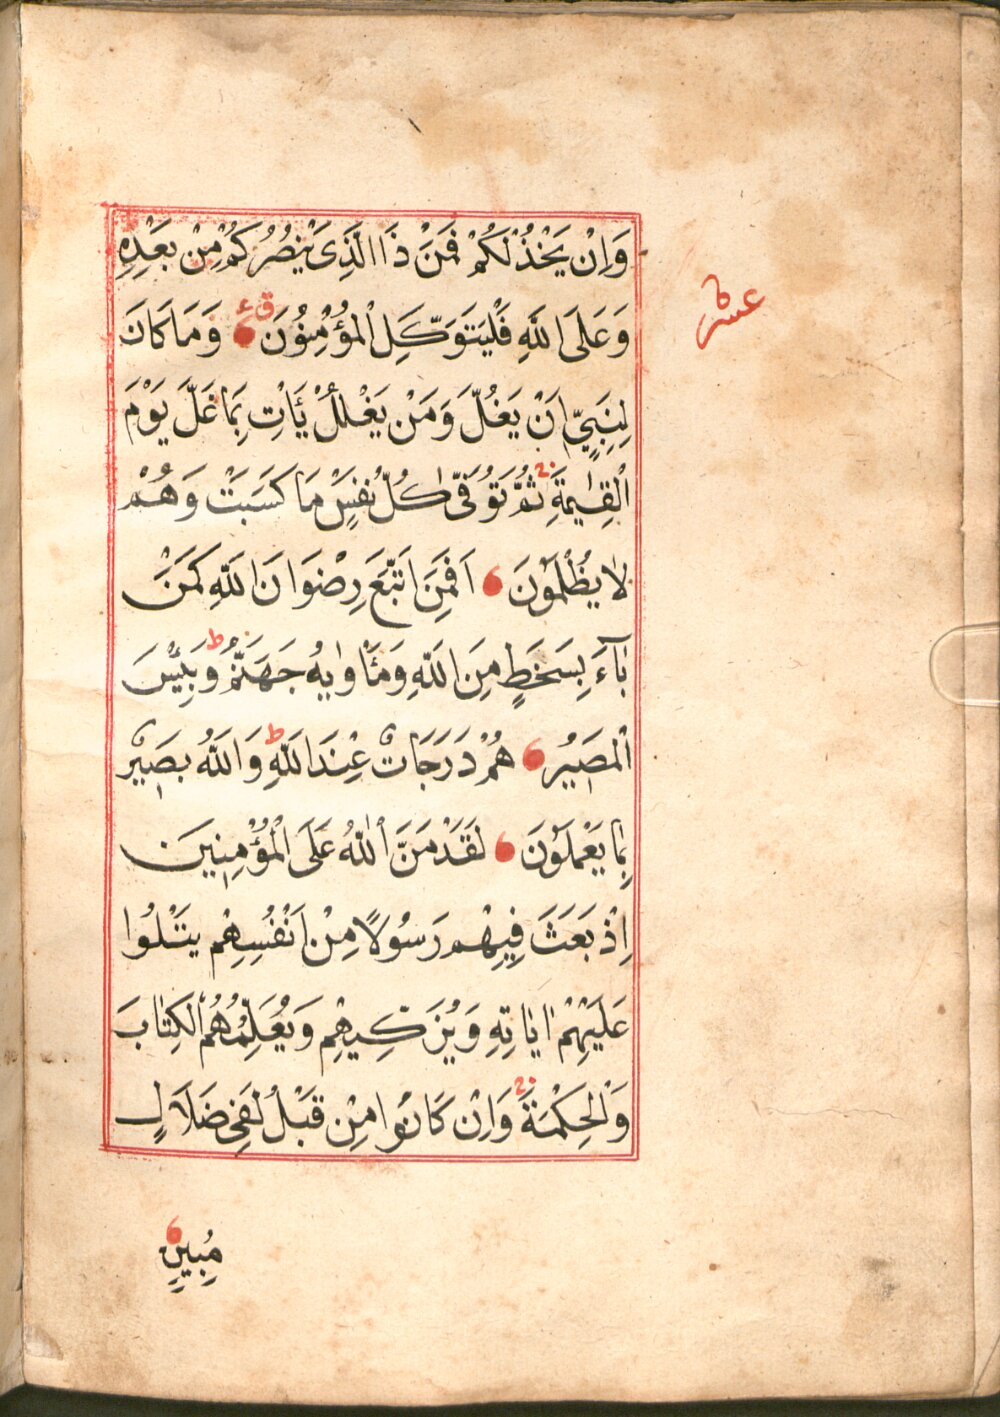 وَاِنْ يَخْذُلْكُمْ فَمَنْ ذَا الَّذِى يَنْصُرُكُمْ مِنْ بَعْدِهِ
عشر
وَعَلَى اللّٰهِ فَلْيَتَوَكَّلِ الْمُؤْمِنُونَ وَمَا كَانَ
لِنَبِيٍّ اَنْ يَغُلَّ وَمَنْ يَغْلُلْ يَأْتِ بِمَا غَلَّ يَوْمَ
الْقِيٰمَةِ ثُمَّ تُوَفّٰى كُلُّ نَفْسٍ مَا كَسَبَتْ وَهُمْ
لَا يُظْلَمُونَ اَفَمَنِ اتَّبَعَ رِضْوَانَ اللّٰهِ كَمَنْ
بَآءَ بِسَخَطٍ مِنَ اللّٰهِ وَمَأْوٰيهُ جَهَنَّمُ ط وَبِئْسَ
الْمَصِيرُ هُمْ دَرَجَاتٌ عِنْدَ اللّٰهِ ط وَاللّٰهُ بَصِيرٌ
بِمَا يَعْمَلُونَ لَقَدْ مَنَّ اللّٰهُ عَلَى الْمُؤْمِنِينَ
اِذْ بَعَثَ فِيهِمْ رَسُولًا مِنْ اَنْفُسِهِمْ يَتْلُوا
عَلَيْهِمْ اٰيَاتِهِ وَيُزَكِّيهِمْ وَيُعَلِّمُهُمُ الْكِتَابَ
وَالْحِكْمَةَ وَاِنْ كَانُوا مِنْ قَبْلُ لَفِى ضَلَالٍ
مُبِينٍ